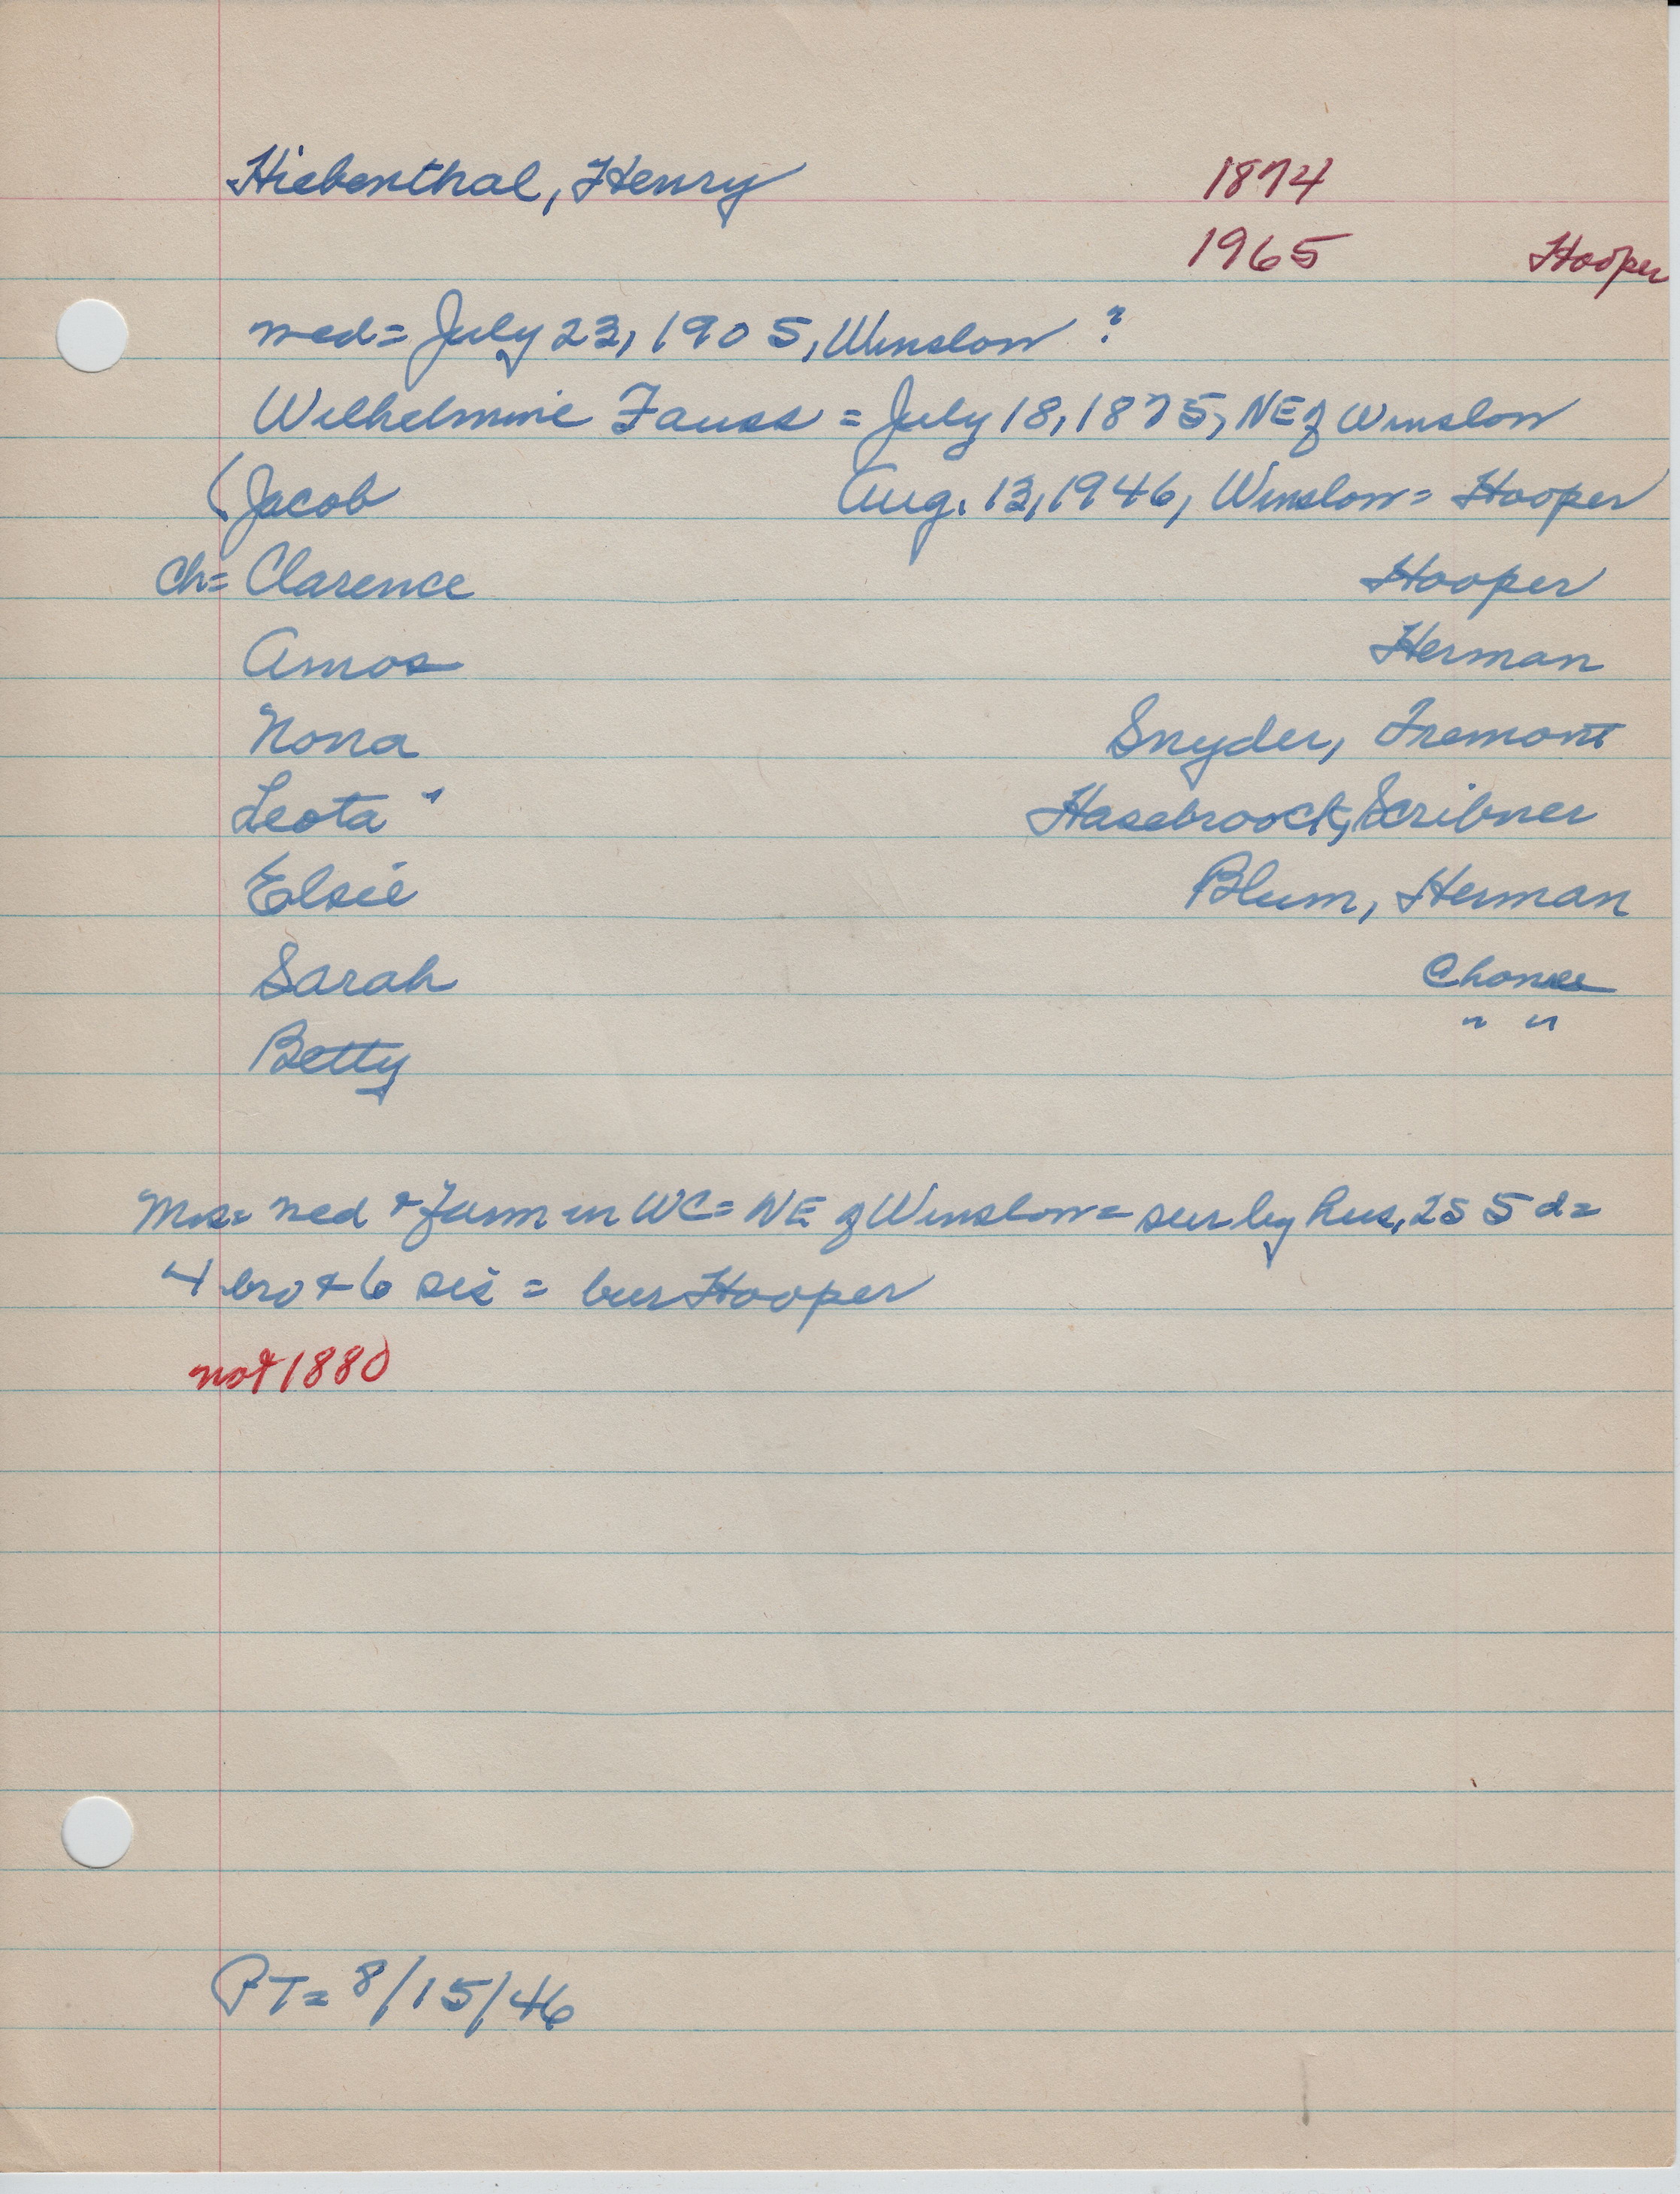 Hiebenthal, Henry 1874
1965 Hooper
med = July 23, 1905, Winslow ?
Wilhelmine Fauss = July 18, 1875, NE of Winslow
(Jacob Aug. 13, 1946, Winslow = Hooper
ch = Clarence Hooper
Amos Herman
Nona Snyder, Fremont
Leota Hasebroock, Scribner
Elsie Blum, Herman
Sarah Chonce
Betty " "
Mrs = med & farm in WC = NE of Winslow = sur by hus, 2s 5 d =
4 bro & 6 sis = bur Hooper
not 1880
PT = 8/15/46